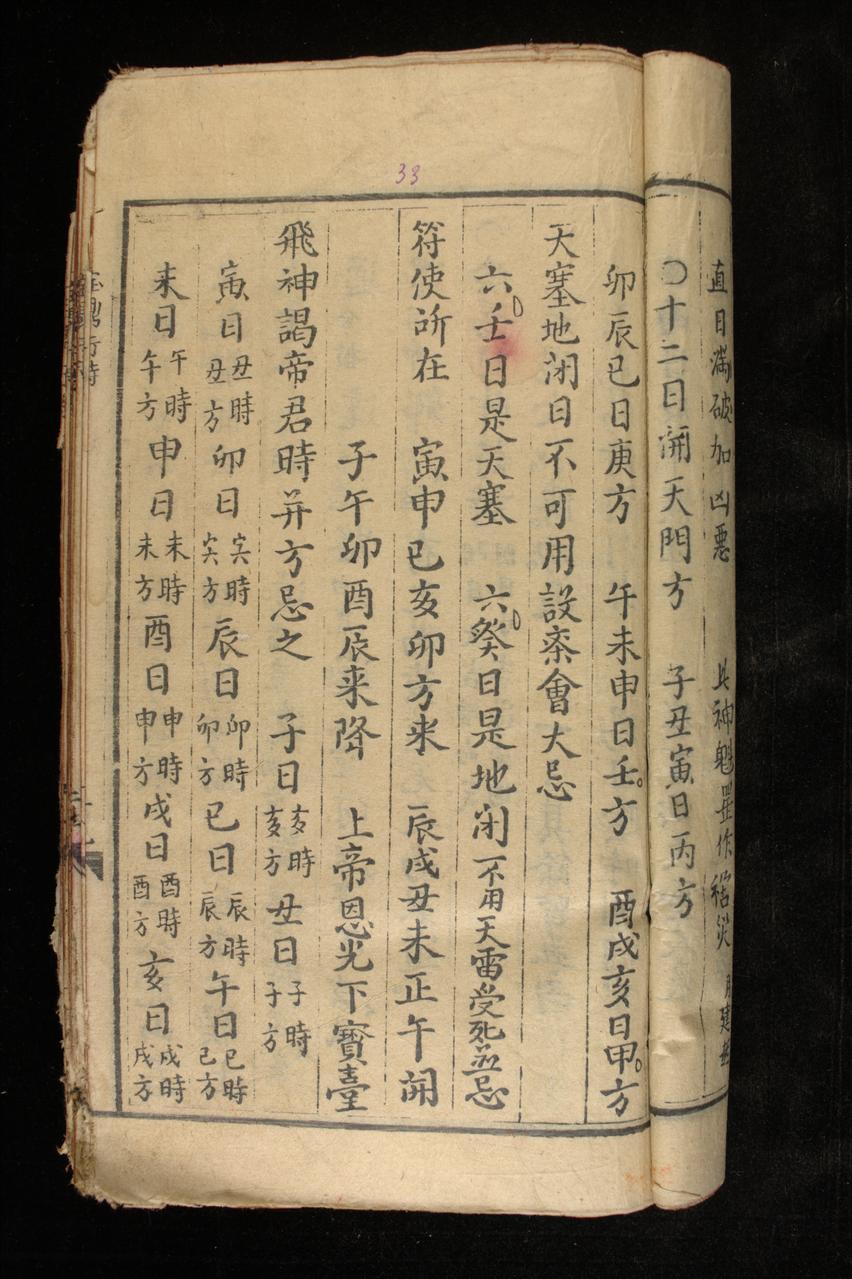 33
直日滿破加凶惡 此神魁罡作禍災 月建
〇十二日開天門方 子丑寅日丙方
卯辰巳日庚方 午未申日壬方 酉戌亥日甲方
天塞地闭日不可用設斋會大忌
六壬日是天塞 六癸日是地闭不用天雷受死並忌
符使所在 寅申巳亥卯方来 辰戌丑未正午開
子午卯酉辰来降 上帝恩光下寳臺
飛神謁帝君時并方忌之 子日亥時亥方丑日子時子方
寅日丑時丑方卯日寅時寅方辰日卯時卯方巳日辰時辰方午日巳時巳方
未日午時午方申日未時未方酉日申時申方戌日酉時酉方亥日戌時戌方